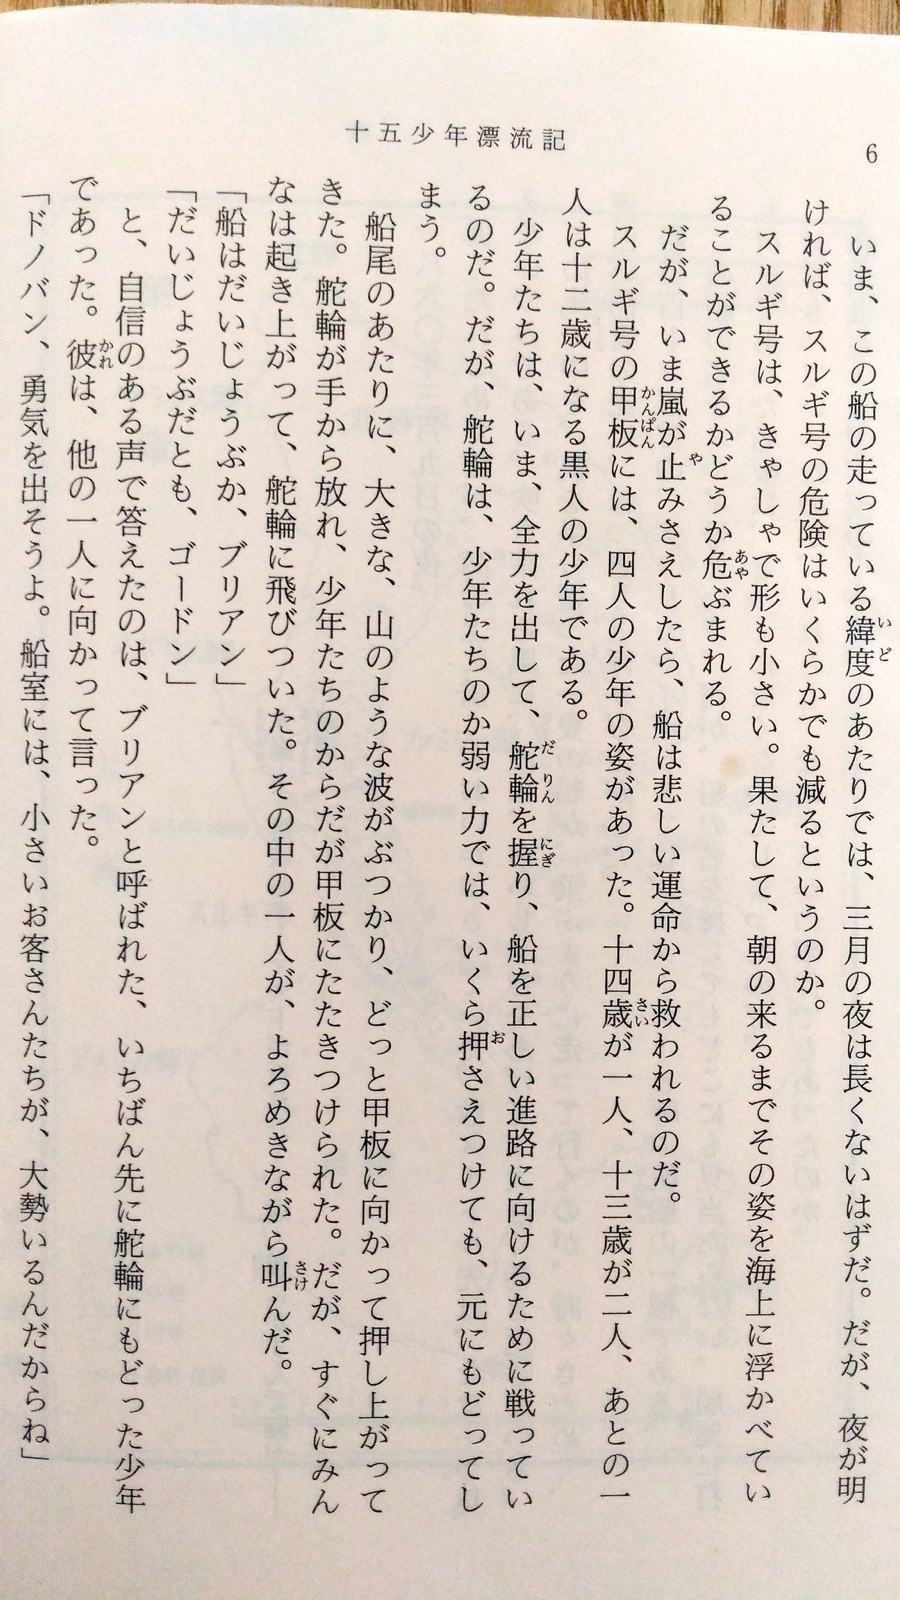 6
十五少年漂流記
いま、この船の走っている緯度のあたりでは、三月の夜は長くないはずだ。だが、夜が明
ければ、スルギ号の危険はいくらかでも減るというのか。
スルギ号は、きゃしゃで形も小さい。果たして、朝の来るまでその姿を海上に浮かべてい
ることができるかどうか危ぶまれる。
だが、いま嵐が止みさえしたら、船は悲しい運命から救われるのだ。
スルギ号の甲板には、四人の少年の姿があった。十四歳が一人、十三歳が二人、あとの一
人は十二歳になる黒人の少年である。
少年たちは、いま、全力を出して、舵輪を握り、船を正しい進路に向けるために戦ってい
るのだ。だが、舵輪は、少年たちのか弱い力では、いくら押さえつけても、元にもどってし
まう。
船尾のあたりに、大きな、山のような波がぶつかり、どっと甲板に向かって押し上がって
きた。舵輪が手から放れ、少年たちのからだが甲板にたたきつけられた。だが、すぐにみん
なは起き上がって、舵輪に飛びついた。その中の一人が、よろめきながら叫んだ。
「船はだいじょうぶか、ブリアン」
「だいじょうぶだとも、ゴードン」
と、自信のある声で答えたのは、ブリアンと呼ばれた、いちばん先に舵輪にもどった少年
であった。彼は、他の一人に向かって言った。
「ドノバン、勇気を出そうよ。船室には、小さいお客さんたちが、大勢いるんだからね」